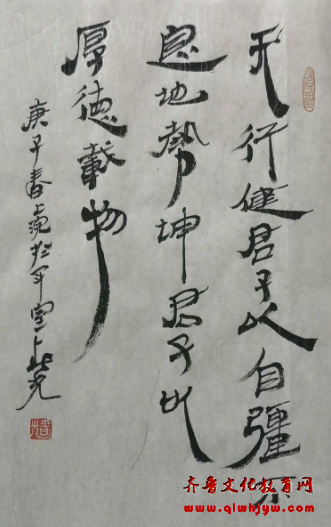 天行健君子以自彊不
息地勢坤君子以
厚德載物
庚子春
齐鲁文化教育网
www.qlwhjyw.com